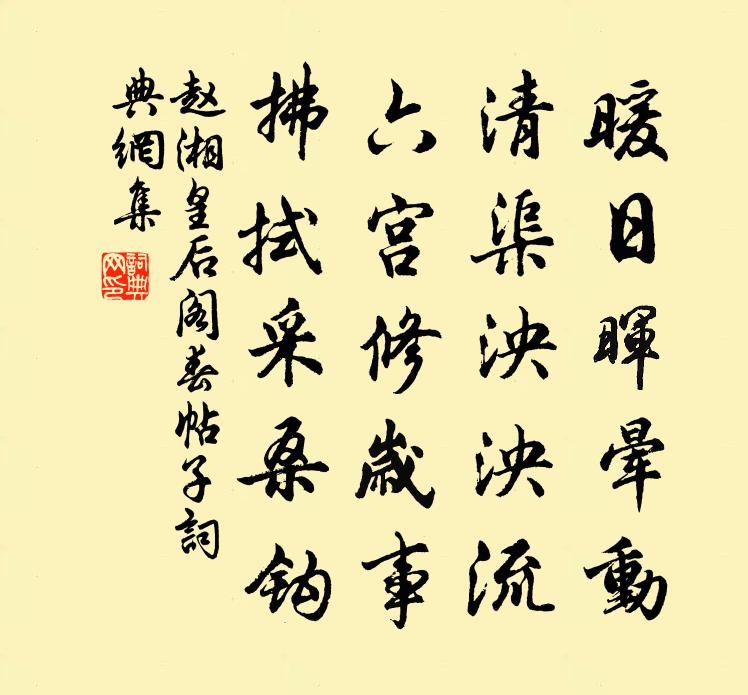 暖日暉暈動
清渠泱泱流
六宮修歲事
拂拭采桑鈎
赵湘皇后阁春帖子詞
典網集
詞典網印